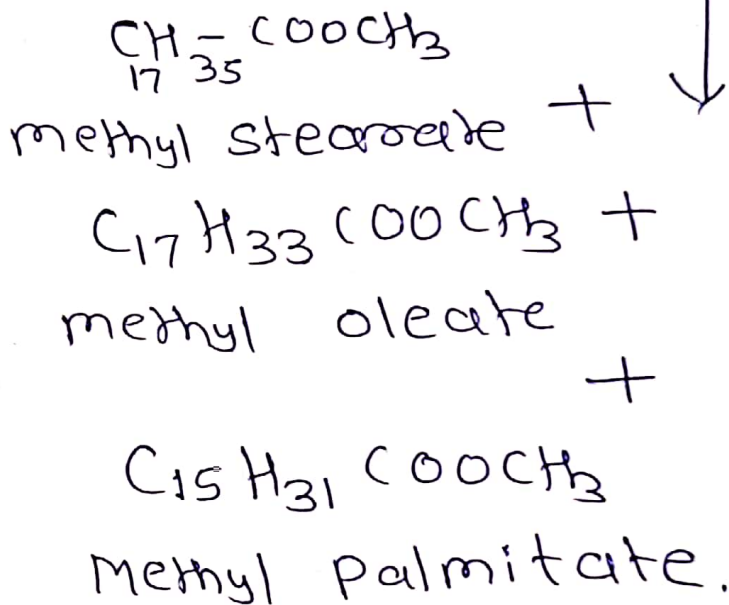 CH - COOCH3
17 35
methyl stearate +
C17 H33 COO CH3 +
methyl oleate
+
C15 H31 COOCH3
Methyl palmitate.